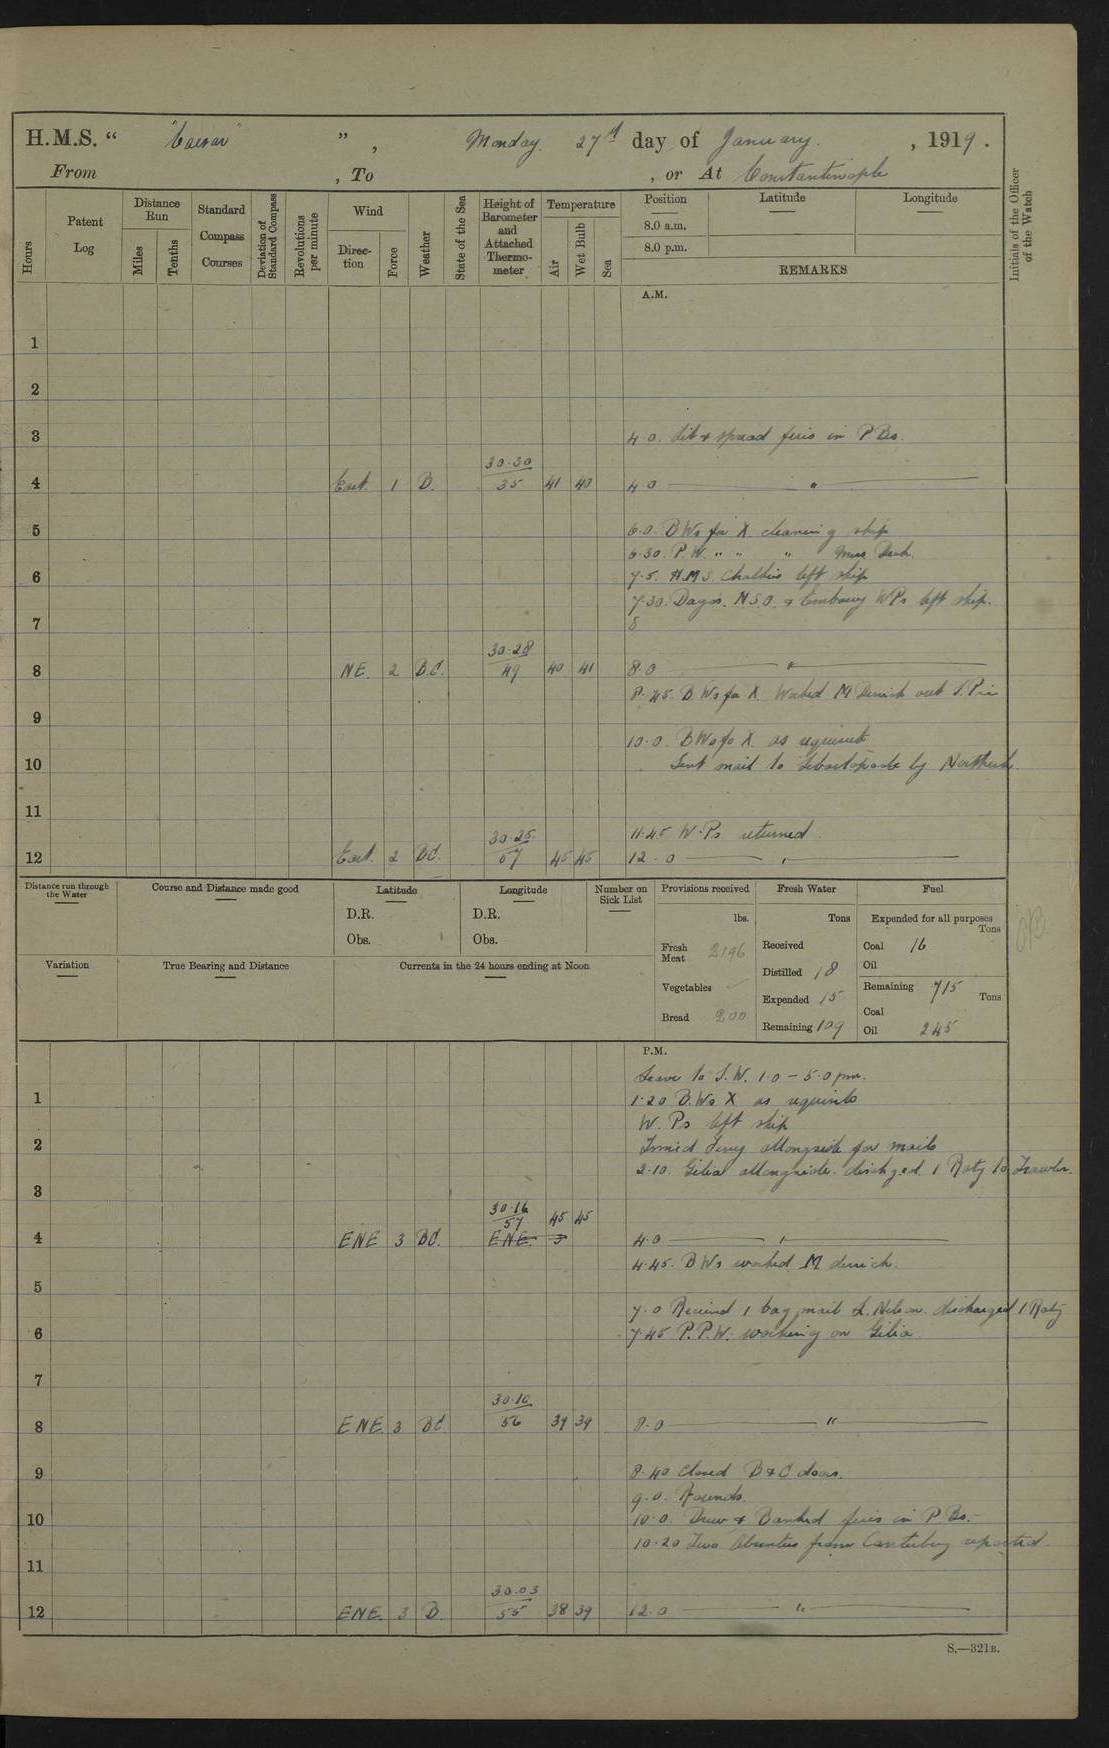 H.M.S. "Caesar", Monday 27th day of January, 1919.
From , To , or At Constantinople
Hours
Patent Log
Distance Run
Miles
Tenths
Standard Compass Courses
Deviation of Standard Compass
Revolutions per minute
Wind
Direction
Force
Weather
State of the Sea
Height of Barometer and Attached Thermometer
Temperature
Air
Wet Bulb
Sea
Position
8.0 a.m.
8.0 p.m.
Latitude
Longitude
REMARKS
Initials of the Officer of the Watch
A.M.
1
2
3
4.0. Lit & spread fires in P Bs.
30.30
4 East. 1 B. 35 41 40 4.0 "
5
6.0. B Ws for X cleaning ship
6.30. P.W. " " " Mess Deck.
6
7.5. H.M.S. left ship
7.30. N.S.O. & Embassy WPs left ship.
7
8
30.28
8 NE. 2 B.C. 49 40 41 8.0 "
8.45. B Ws for X. M Derrick out
9
10.0. B Ws for X. as requisite
10
Sent mail to by
11
11.45 W.Ps returned.
30.25
12 East. 2 BC. 57 45 45 12.0 "
Distance run through the Water
Course and Distance made good
Latitude
D.R.
Obs.
Longitude
D.R.
Obs.
Number on Sick List
Provisions received
lbs.
Fresh Meat 2196
Vegetables
Bread 200
Fresh Water
Tons
Received
Distilled 18
Expended 15
Remaining 109
Fuel
Expended for all purposes
Tons
Coal 16
Oil
Remaining 715 Tons
Coal
Oil 245
Variation
True Bearing and Distance
Currents in the 24 hours ending at Noon
P.M.
Leave to S.W. 1.0 – 5.0 pm.
1
1.20 B.Ws X as requisite
W. Ps left ship
2
Ismid ferry allongside for mails
2.10. Gilia allongside. dischged. 1 Raty to Trawler.
3
30.16
57 45 45
4 ENE 3 BC. ENE. 3 4.0 "
4.45. B Ws worked M derrick.
5
7.0 Received 1 bag mail L. Nelson. discharged 1 Raty
6
7.45 P.P.W. working on Gilia.
7
30.10
8 ENE 3 BC 56 39 39 8.0 "
9
8.40 Closed B & C doors.
9.0. Rounds.
10
10.0. Drew & Banked fires in P Bs.
10.20 Two Absentees from Canterbury reported
11
30.03
12 ENE. 3 B 55 38 39 12.0 "
S.—321B.